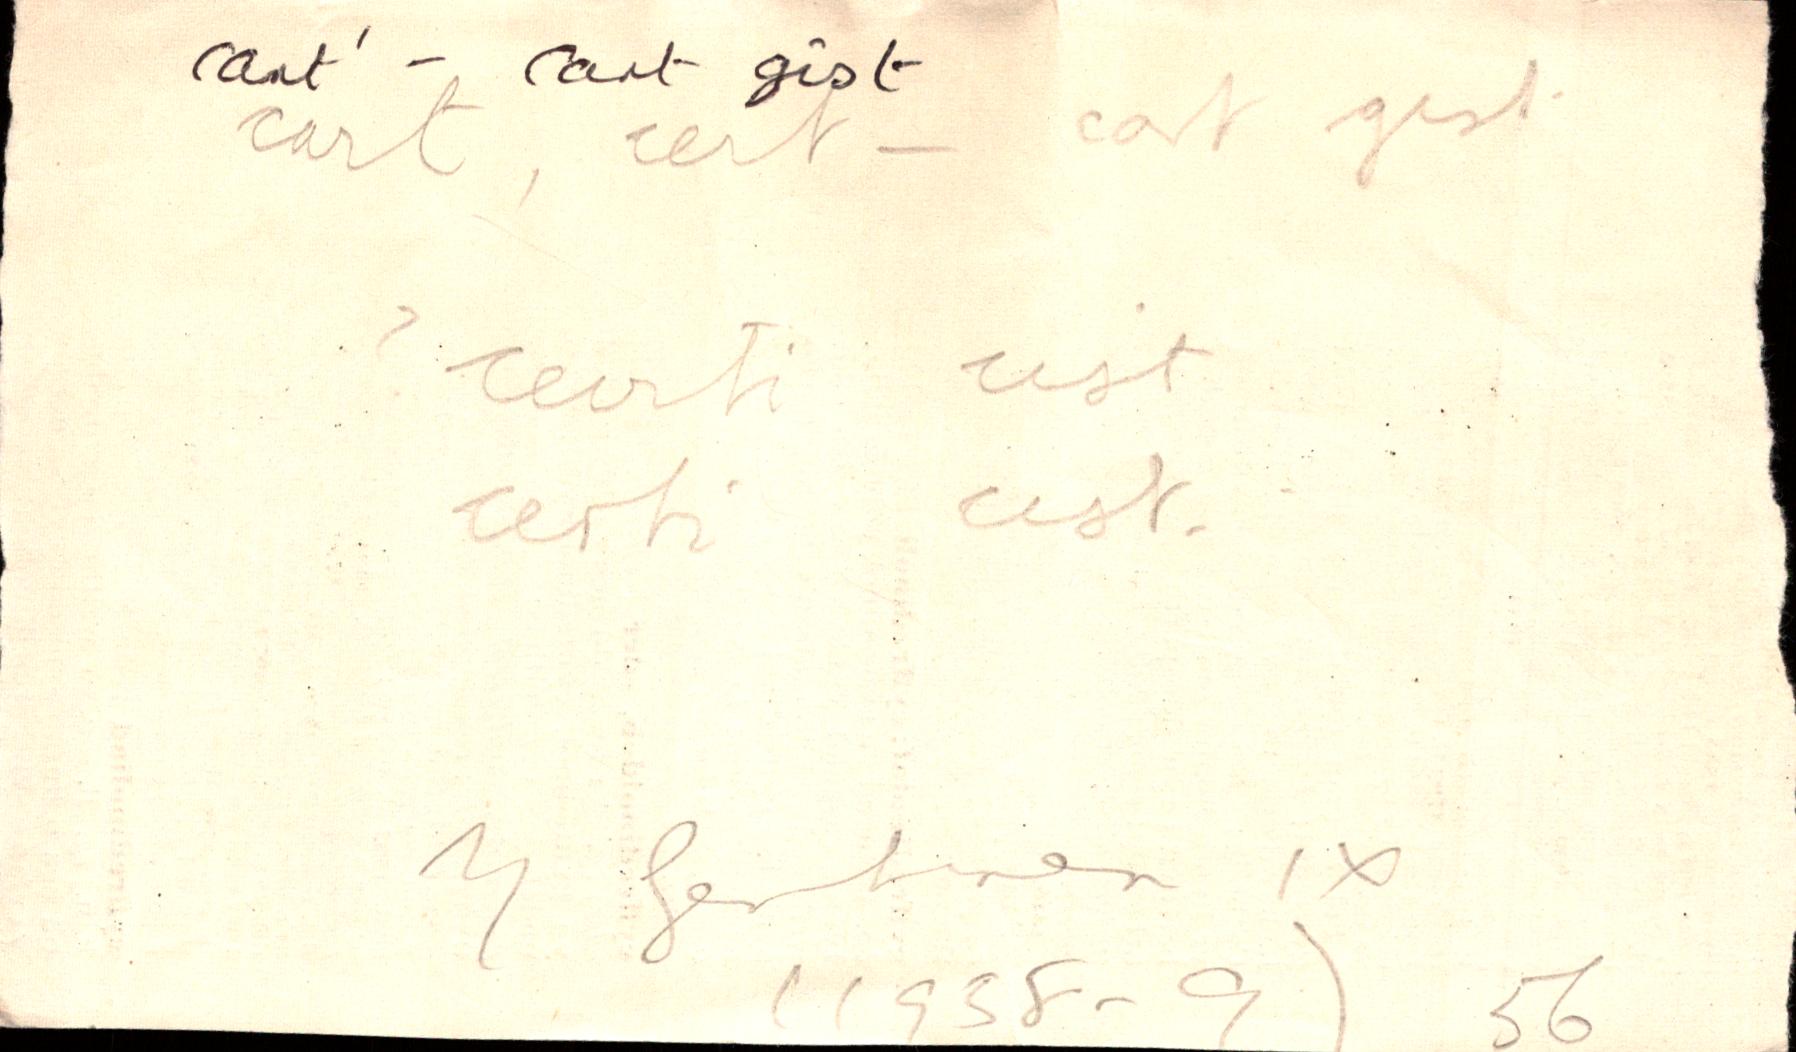 cart' - cart gist
cart, cert — cart gist
? ceirti cist
certi cist.
Y Gerlinen IX
(1938-9) 56